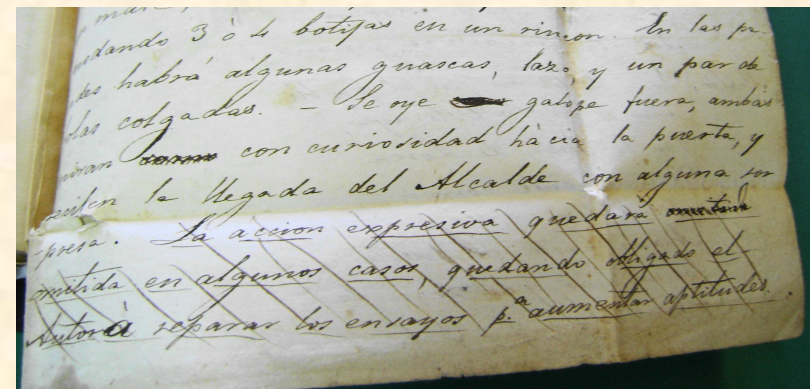 quedando 3 ò 4 botijas en un rincon. En las pa-
des habrá algunas guascas, lazo y un par de
colgadas. – Se oye galope fuera, ambas
miran con curiosidad hàcia la puerta, y
reciben la llegada del Alcalde con alguna sor
-presa. La accion expresiva quedará
omitida en algunos casos, quedando obligado el
Autor á reparar los ensayos p.ª aumentar aptitudes.